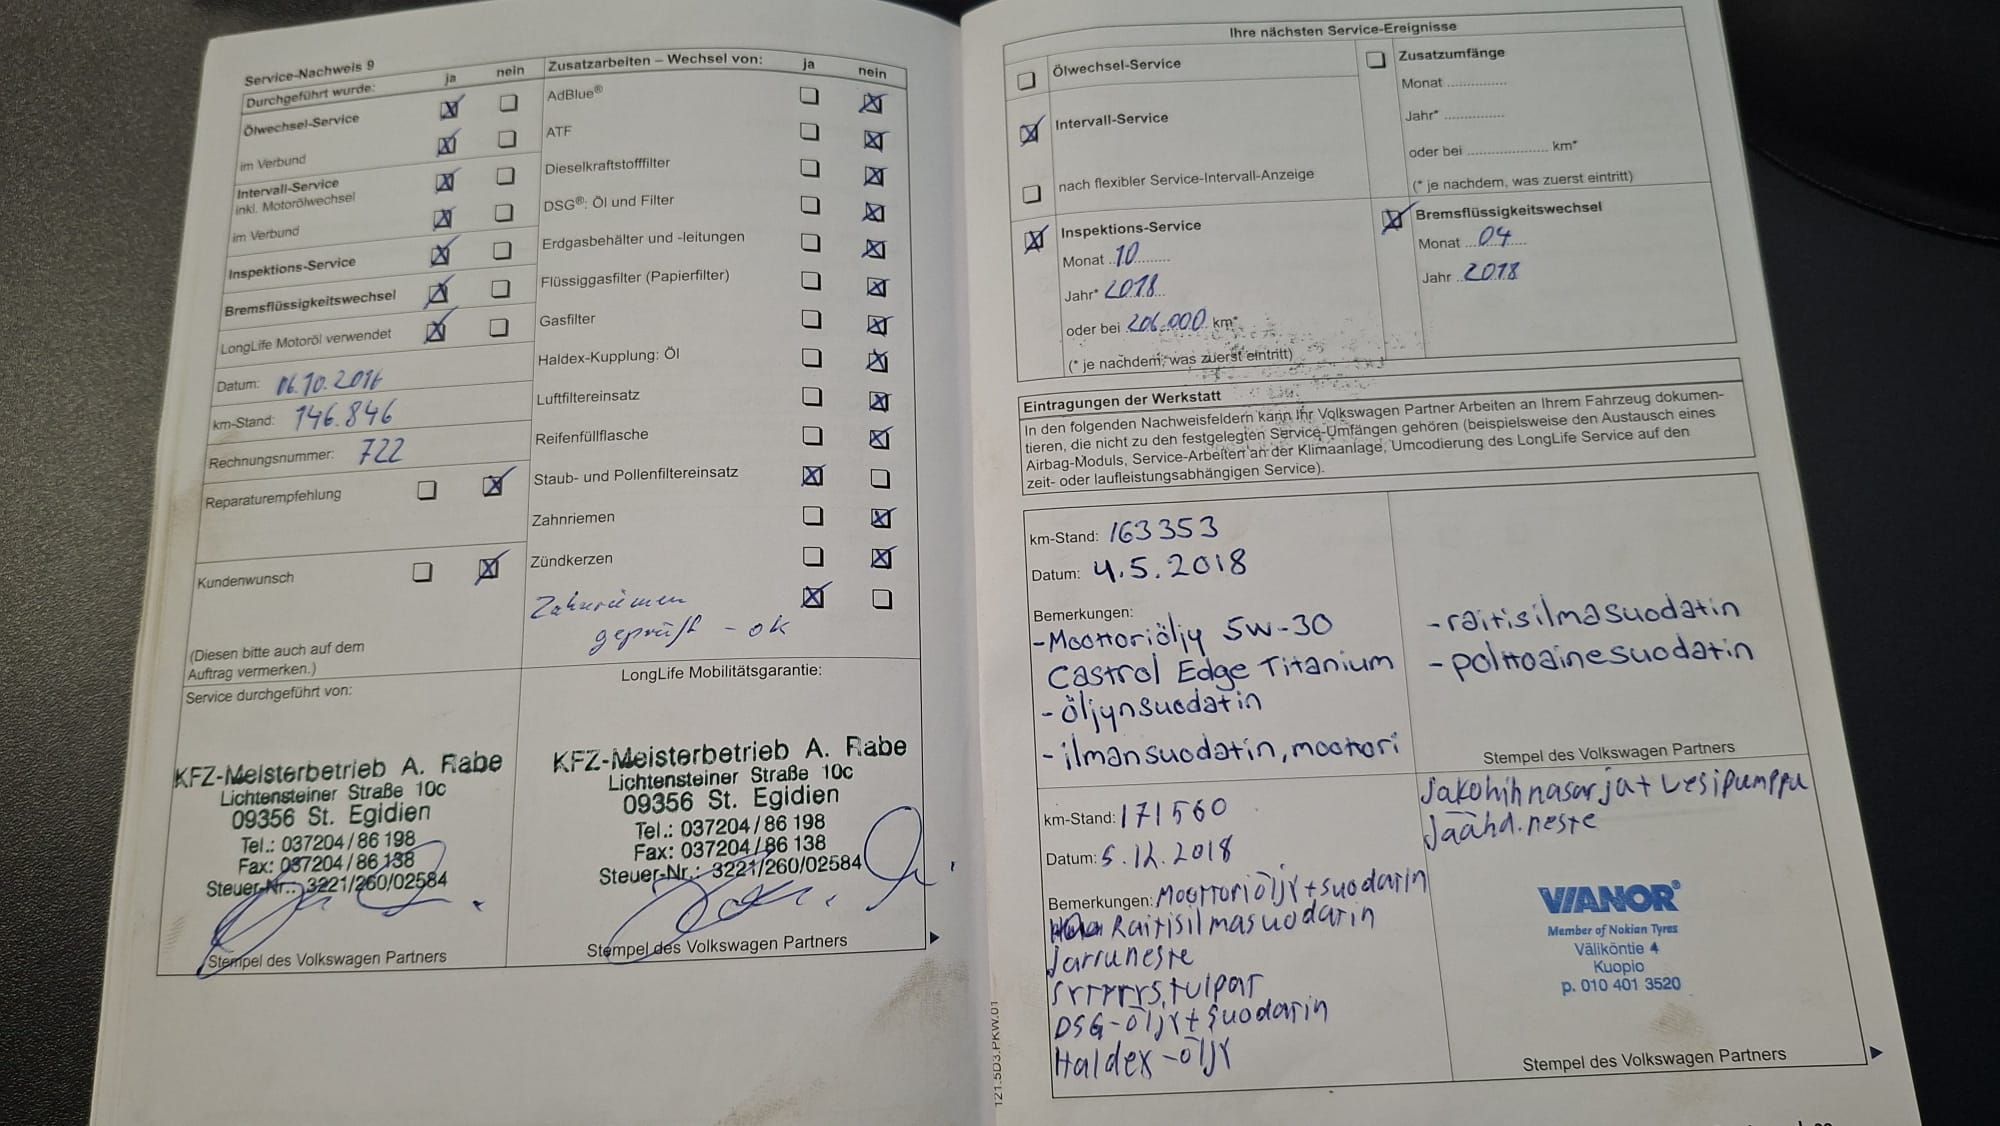 Service-Nachweis 9
Durchgeführt wurde: ja nein
Ölwechsel-Service
im Verbund
Intervall-Service
inkl. Motorölwechsel
im Verbund
Inspektions-Service
Bremsflüssigkeitswechsel
LongLife Motoröl verwendet
Datum: 06.10.2016
km-Stand: 146.846
Rechnungsnummer: 722
Reparaturempfehlung
Kundenwunsch
(Diesen bitte auch auf dem
Auftrag vermerken.)
Service durchgeführt von:
KFZ-Meisterbetrieb A. Rabe
Lichtensteiner Straße 10c
09356 St. Egidien
Tel.: 037204/86 198
Fax: 037204/86 138
Steuer-Nr.: 3221/260/02584
Stempel des Volkswagen Partners
Zusatzarbeiten – Wechsel von: ja nein
AdBlue®
ATF
Dieselkraftstofffilter
DSG®: Öl und Filter
Erdgasbehälter und -leitungen
Flüssiggasfilter (Papierfilter)
Gasfilter
Haldex-Kupplung: Öl
Luftfiltereinsatz
Reifenfüllflasche
Staub- und Pollenfiltereinsatz
Zahnriemen
Zündkerzen
Zahnriemen
geprüft - ok
LongLife Mobilitätsgarantie:
KFZ-Meisterbetrieb A. Rabe
Lichtensteiner Straße 10c
09356 St. Egidien
Tel.: 037204/86 198
Fax: 037204/86 138
Steuer-Nr.: 3221/260/02584
Stempel des Volkswagen Partners
Ihre nächsten Service-Ereignisse
Ölwechsel-Service
Intervall-Service
nach flexibler Service-Intervall-Anzeige
Inspektions-Service
Monat 10
Jahr* 2018
oder bei 206.000 km*
(* je nachdem, was zuerst eintritt)
Zusatzumfänge
Monat
Jahr*
oder bei km*
(* je nachdem, was zuerst eintritt)
Bremsflüssigkeitswechsel
Monat 04
Jahr 2018
Eintragungen der Werkstatt
In den folgenden Nachweisfeldern kann Ihr Volkswagen Partner Arbeiten an Ihrem Fahrzeug dokumen-
tieren, die nicht zu den festgelegten Service-Umfängen gehören (beispielsweise den Austausch eines
Airbag-Moduls, Service-Arbeiten an der Klimaanlage, Umcodierung des LongLife Service auf den
zeit- oder laufleistungsabhängigen Service).
km-Stand: 163353
Datum: 4.5.2018
Bemerkungen:
-Moottoriöljy 5W-30
Castrol Edge Titanium
-öljynsuodatin
-ilmansuodatin, moottori
-raitisilmasuodatin
-polttoainesuodatin
Stempel des Volkswagen Partners
km-Stand: 171560
Datum: 5.12.2018
Bemerkungen: Moottoriöljy+suodatin
Raitisilmasuodatin
Jarruneste
Sytytys.tulpat
DSG-öljy+suodatin
Haldex-öljy
Jakohihnasarja+vesipumppu
Jäähd.neste
VIANOR®
Member of Nokian Tyres
Väliköntie 4
Kuopio
p. 010 401 3520
Stempel des Volkswagen Partners
121.5D3.PKW.01